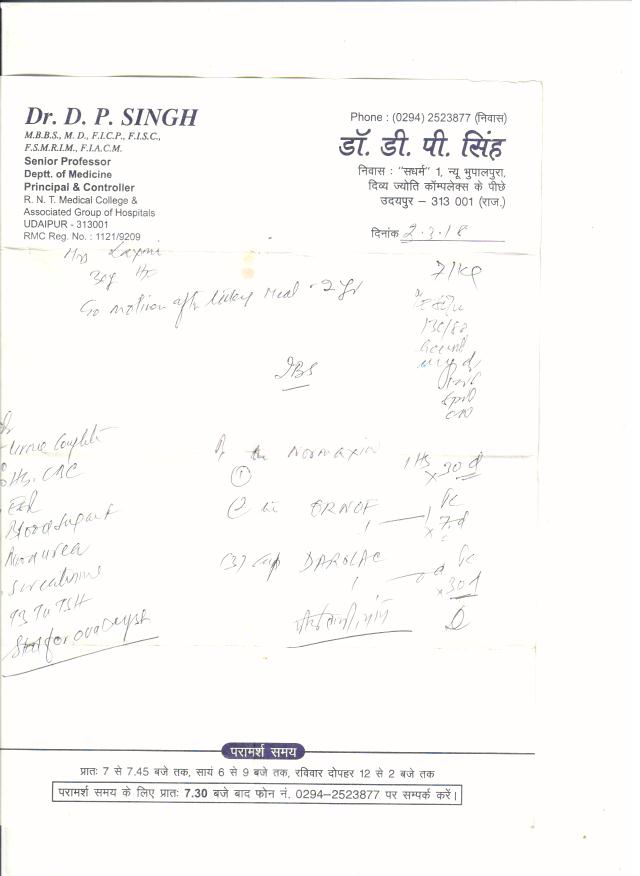 Dr. D. P. SINGH
M.B.B.S., M. D., F.I.C.P., F.I.S.C.,
F.S.M.R.I.M., F.I.A.C.M.
Senior Professor
Deptt. of Medicine
Principal & Controller
R. N. T. Medical College &
Associated Group of Hospitals
UDAIPUR - 313001
RMC Reg. No. : 1121/9209
Phone : (0294) 2523877 (निवास)
डॉ. डी. पी. सिंह
निवास : "सधर्म" 1, न्यू भुपालपुरा,
दिव्य ज्योति कॉम्पलेक्स के पीछे
उदयपुर – 313 001 (राज.)
दिनांक 2.3.18
Mrs Laxmi
motion after every meal - 2 yr
130/88
IBS
Urine Complete
Hb. CBC
Blood Sugar F
Blood urea
S. creatinine
T3 T4 TSH
Stool for ova cyst
Normaxin
1 HS x 30 d
①
ORNOF
x 7 d
(3) Cap DAROLAC
x 30 d
परामर्श समय
प्रातः 7 से 7.45 बजे तक, सायं 6 से 9 बजे तक, रविवार दोपहर 12 से 2 बजे तक
परामर्श समय के लिए प्रातः 7.30 बजे बाद फोन नं. 0294–2523877 पर सम्पर्क करें।